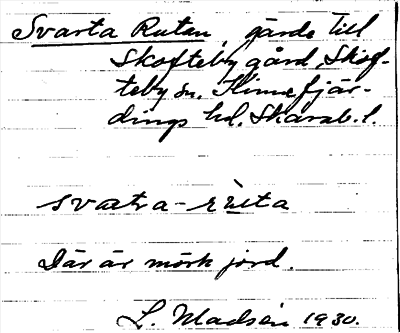 Svarta Rutan, gärde till
Skofteby gård, Skof-
teby sn. Kinnefjär-
dings hd. Skarab. l.
svarta-ruta
Där är mörk jord.
L. Madsén 1930.